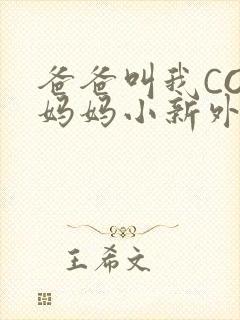 爸爸叫我CO
妈妈小新外
王希文